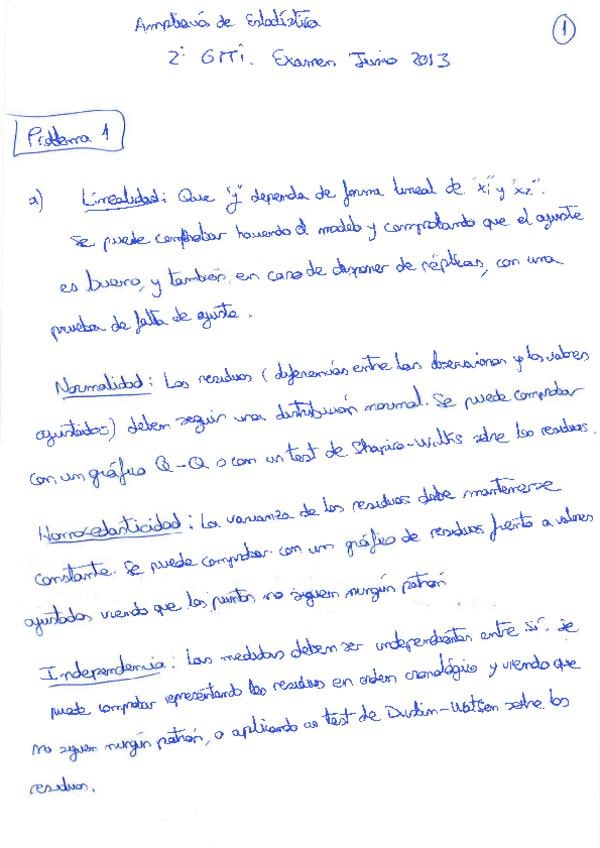 Ampliación de Estadística
1
2º GITI. Examen Junio 2013
Problema 1
a) Linealidad: Que "y" dependa de forma lineal de "x1" y "x2".
Se puede comprobar haciendo el modelo y comprobando que el ajuste
es bueno, y también, en caso de disponer de réplicas, con una
prueba de falta de ajuste.
Normalidad: Los residuos (diferencias entre las observaciones y los valores
ajustados) deben seguir una distribución normal. Se puede comprobar
con un gráfico Q-Q o con un test de Shapiro-Wilks sobre los residuos.
Homocedasticidad: La varianza de los residuos debe mantenerse
constante. Se puede comprobar con un gráfico de residuos frente a valores
ajustados viendo que los puntos no siguen ningún patrón
Independencia: Las medidas deben ser independientes entre sí. Se
puede comprobar representando los residuos en orden cronológico y viendo que
no siguen ningún patrón, o aplicando un test de Durbin-Watson sobre los
residuos.